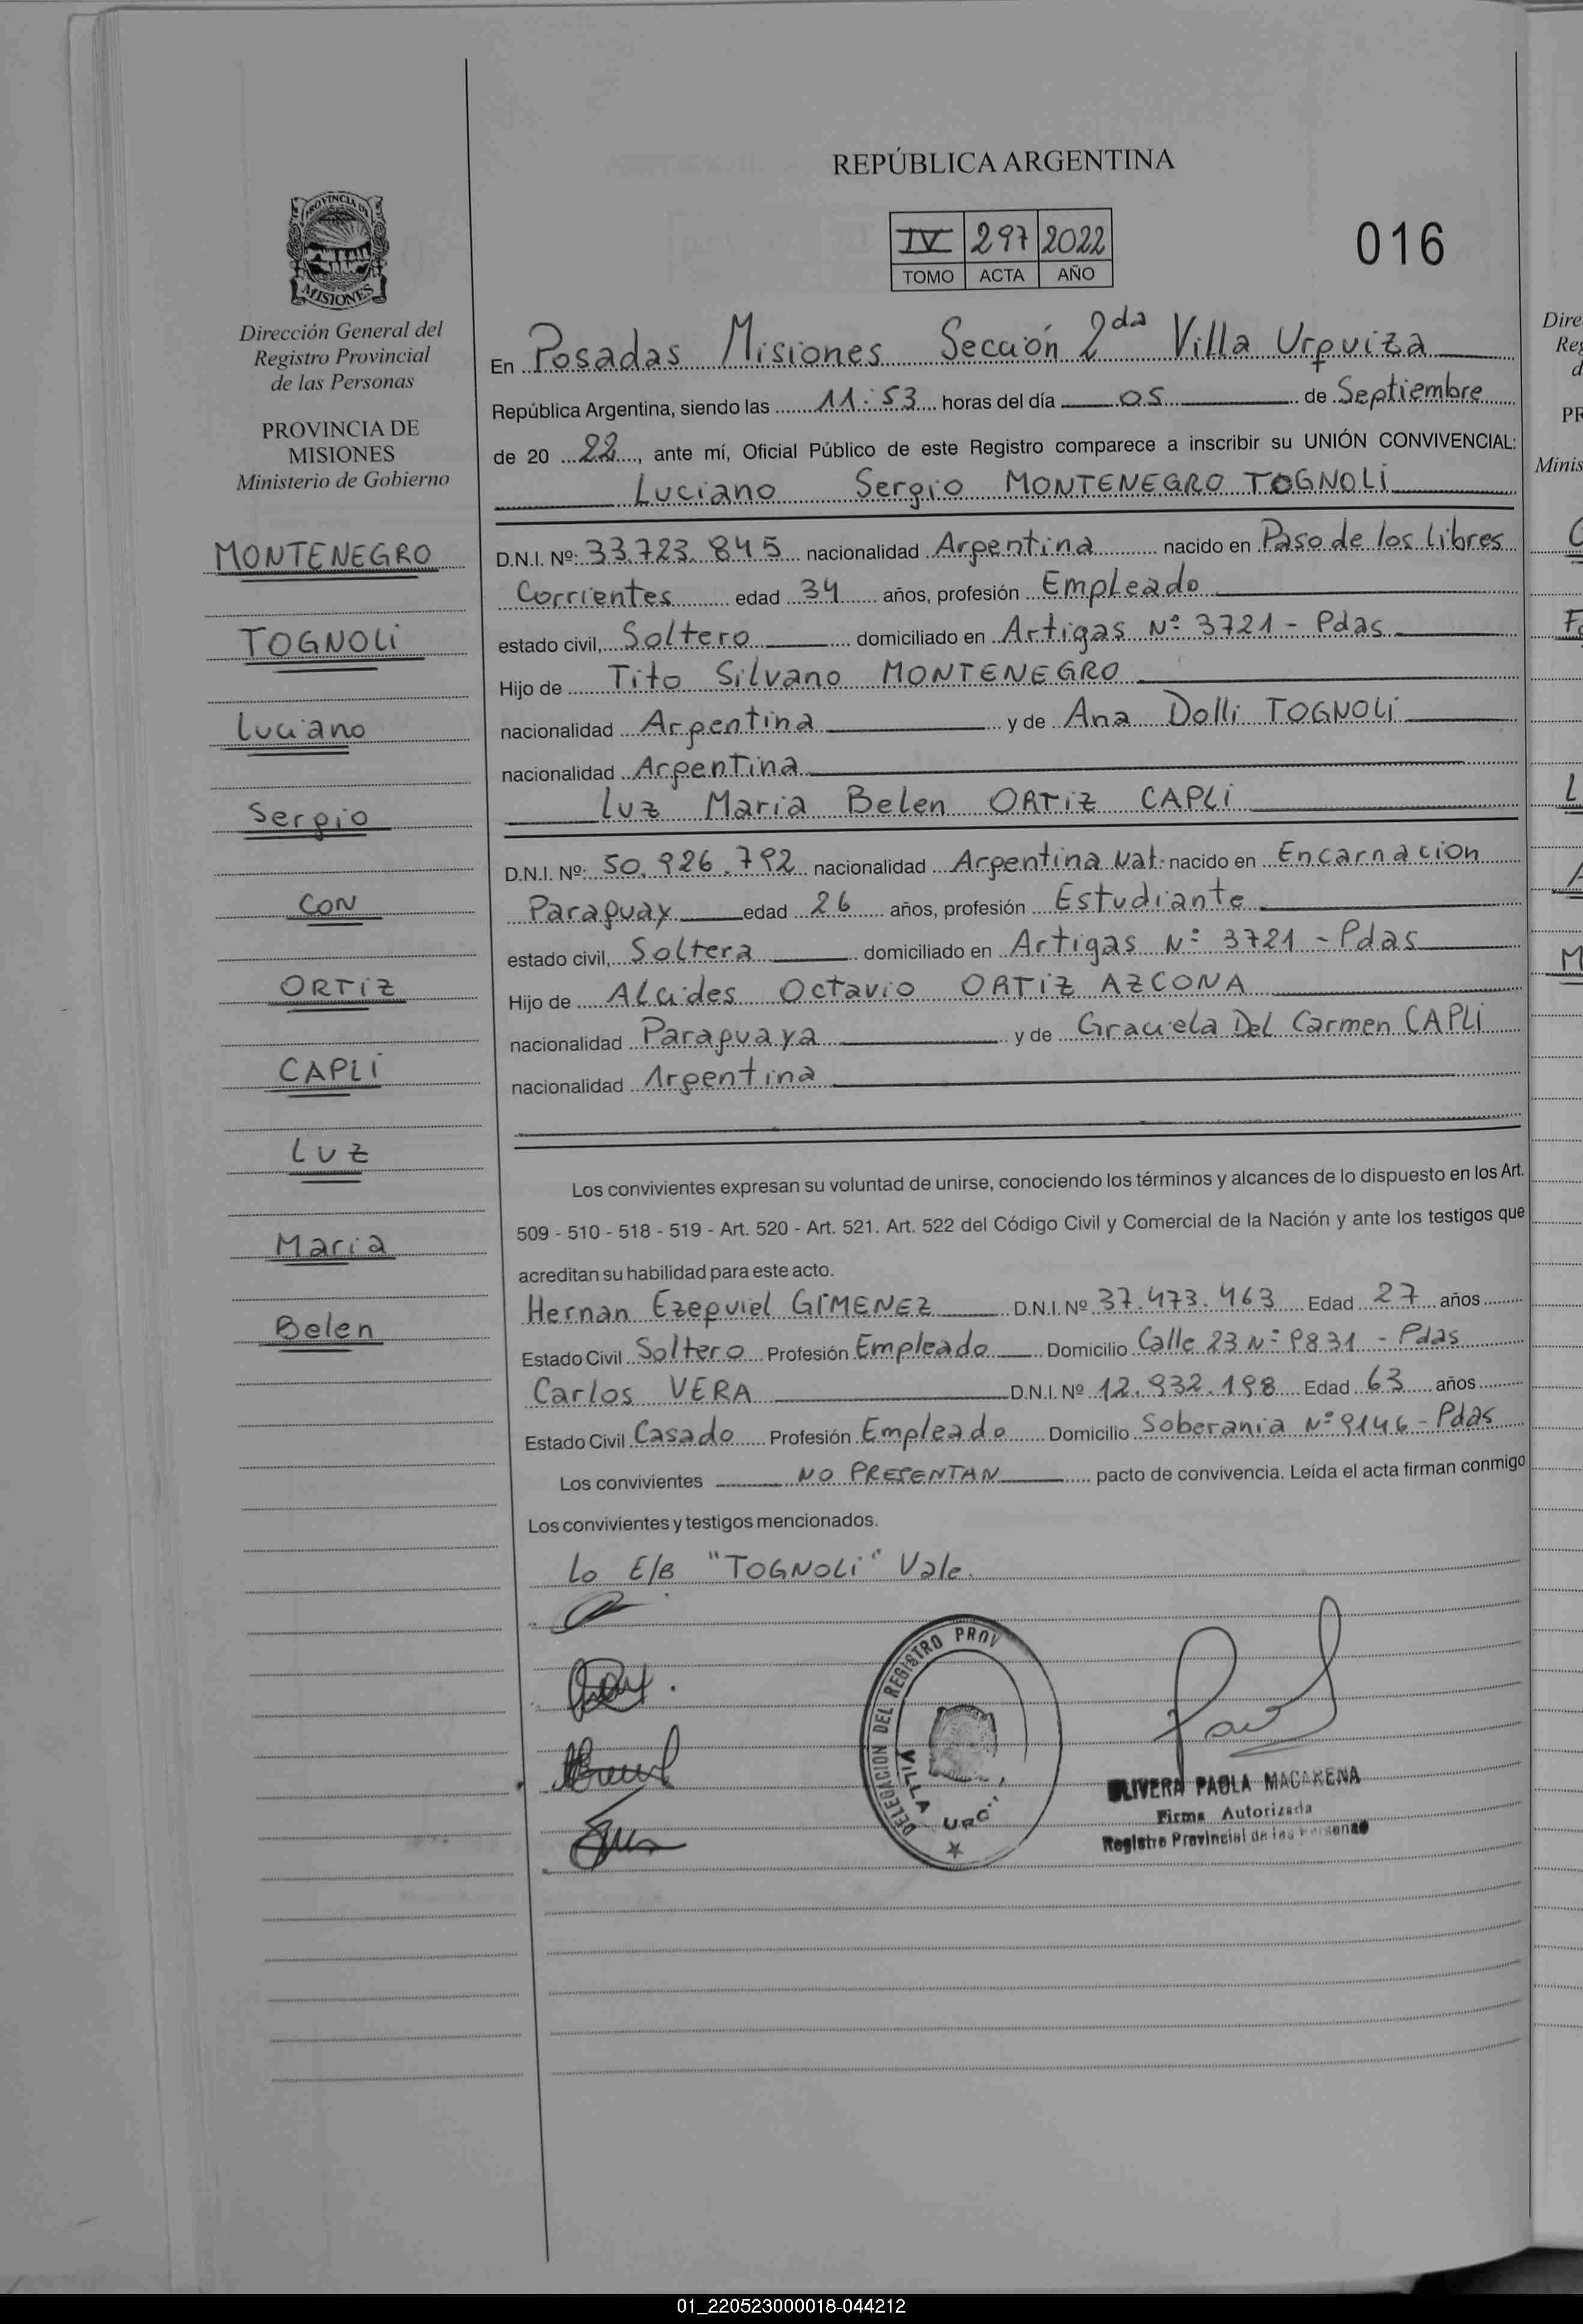 REPÚBLICA ARGENTINA
IV 297 2022
TOMO ACTA AÑO
016
PROVINCIA DE
MISIONES
Dirección General del
Registro Provincial
de las Personas
PROVINCIA DE
MISIONES
Ministerio de Gobierno
MONTENEGRO
TOGNOLI
Luciano
Sergio
CON
ORTIZ
CAPLI
LUZ
Maria
Belen
En Posadas Misiones Sección 2da Villa Urquiza
República Argentina, siendo las 11:53 horas del día 05 de Septiembre
de 20 22, ante mí, Oficial Público de este Registro comparece a inscribir su UNIÓN CONVIVENCIAL:
Luciano Sergio MONTENEGRO TOGNOLI
D.N.I. Nº: 33.723.845 nacionalidad Argentina nacido en Paso de los libres
Corrientes edad 34 años, profesión Empleado
estado civil, Soltero domiciliado en Artigas Nº 3721 - Pdas
Hijo de Tito Silvano MONTENEGRO
nacionalidad Argentina y de Ana Dolli TOGNOLI
nacionalidad Argentina
Luz Maria Belen ORTIZ CAPLI
D.N.I. Nº: 50.926.792 nacionalidad Argentina Nat. nacido en Encarnación
Paraguay edad 26 años, profesión Estudiante
estado civil, Soltera domiciliado en Artigas Nº 3721 - Pdas
Hijo de Alcides Octavio ORTIZ AZCONA
nacionalidad Paraguaya y de Graciela Del Carmen CAPLI
nacionalidad Argentina
Los convivientes expresan su voluntad de unirse, conociendo los términos y alcances de lo dispuesto en los Art.
509 - 510 - 518 - 519 - Art. 520 - Art. 521. Art. 522 del Código Civil y Comercial de la Nación y ante los testigos que
acreditan su habilidad para este acto.
Hernan Ezequiel GIMENEZ D.N.I. Nº 37.473.463 Edad 27 años
Estado Civil Soltero Profesión Empleado Domicilio Calle 23 Nº 9831 - Pdas
Carlos VERA D.N.I. Nº 12.932.198 Edad 63 años
Estado Civil Casado Profesión Empleado Domicilio Soberania Nº 9146 - Pdas
Los convivientes NO PRESENTAN pacto de convivencia. Leída el acta firman conmigo
Los convivientes y testigos mencionados.
Lo E/B "TOGNOLI" Vale.
DELEGACION DEL REGISTRO PROV
VILLA URQ
OLIVERA PAOLA MACARENA
Firma Autorizada
Registro Provincial de las Personas
01_220523000018-044212